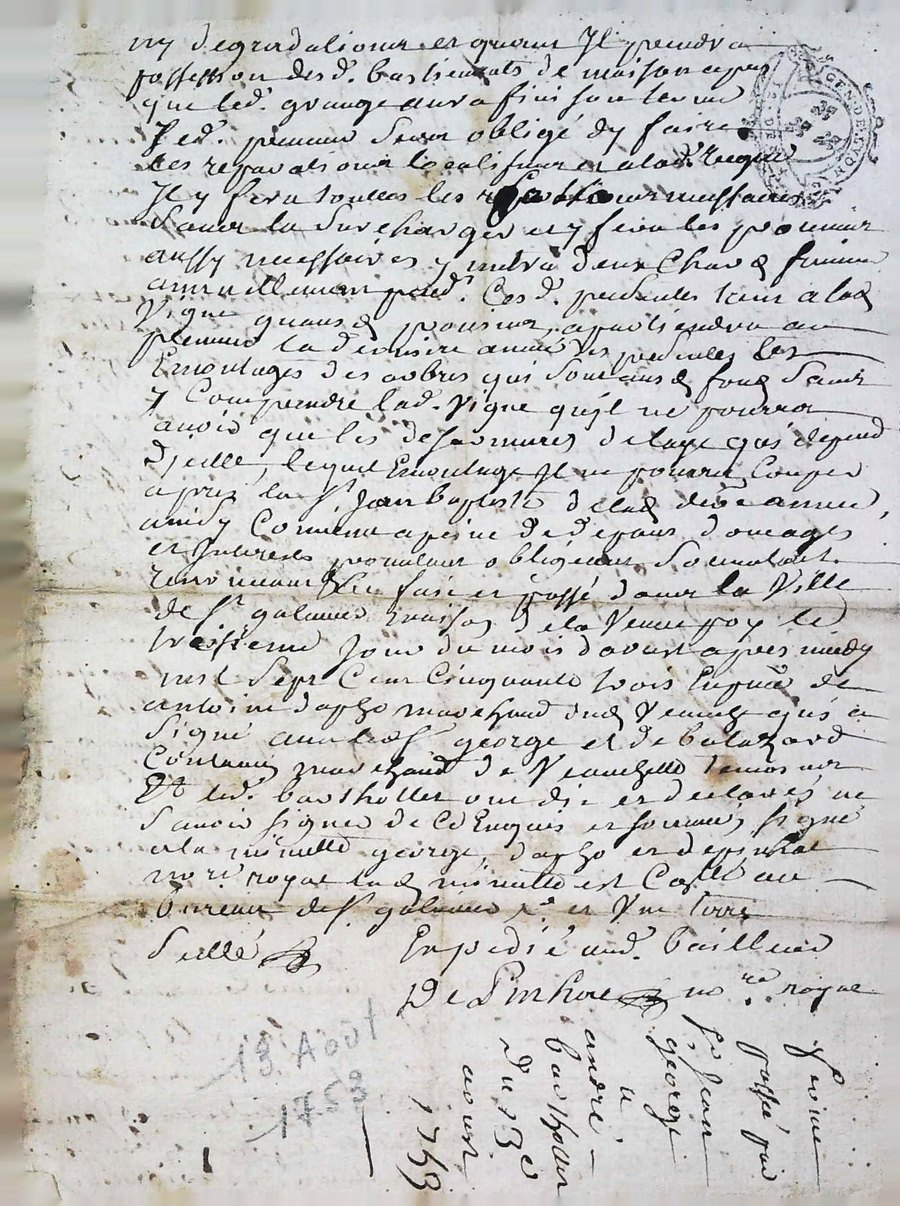 ny degradations et quand Il prendra
possession desd. bastiments de maison apres
que led. grange aura fini son terme
led. preneur sera obligé dy faire
les reparations locatifves et a lad.
Il y fera touttes les
sans la surcharger et y fera les provins
aussy necessaires y mettra deux chars de fumier
annuellement pend. Cesd. a lad
Vigne quand provins, apartiendra au
preneur la derniere année les
Emontages des arbres qui sont aud fond sans
y Comprendre lad. Vigne qu'il ne pourra
avoir que les de laye qui depend
d'jcelle, lequel Emontage Il ne pourra Couper
apres la St Jean baptiste de lad année,
ainsy Convenu a peine de depans domages
et Interests promettant obligeant soumettant
renonceant fait et passé dans la Ville
de St galmier maison de la Veuve poy le
treisieme jour du mois d'aoust apres midy
mil Sept Cent Cinquante trois En pnce de
antoine marchand dud Veauche qui a
signé avec led george et de balazard
marchand de Veauchette temoins
Et led. barthollet ont dit et declarés ne
sçavoir signer de ce Enquis et sommés, signé
a la minutte george, et depinhac
nore royal lad minutte est Collée au
bureau de St galmier par
Scellé
Expedié aud. bailleur
De Pinhac nore royal
13 Août
1753
ferme
passé par
Sr Jean
george
a
andré
barthollet
du 13e
aoust
1753